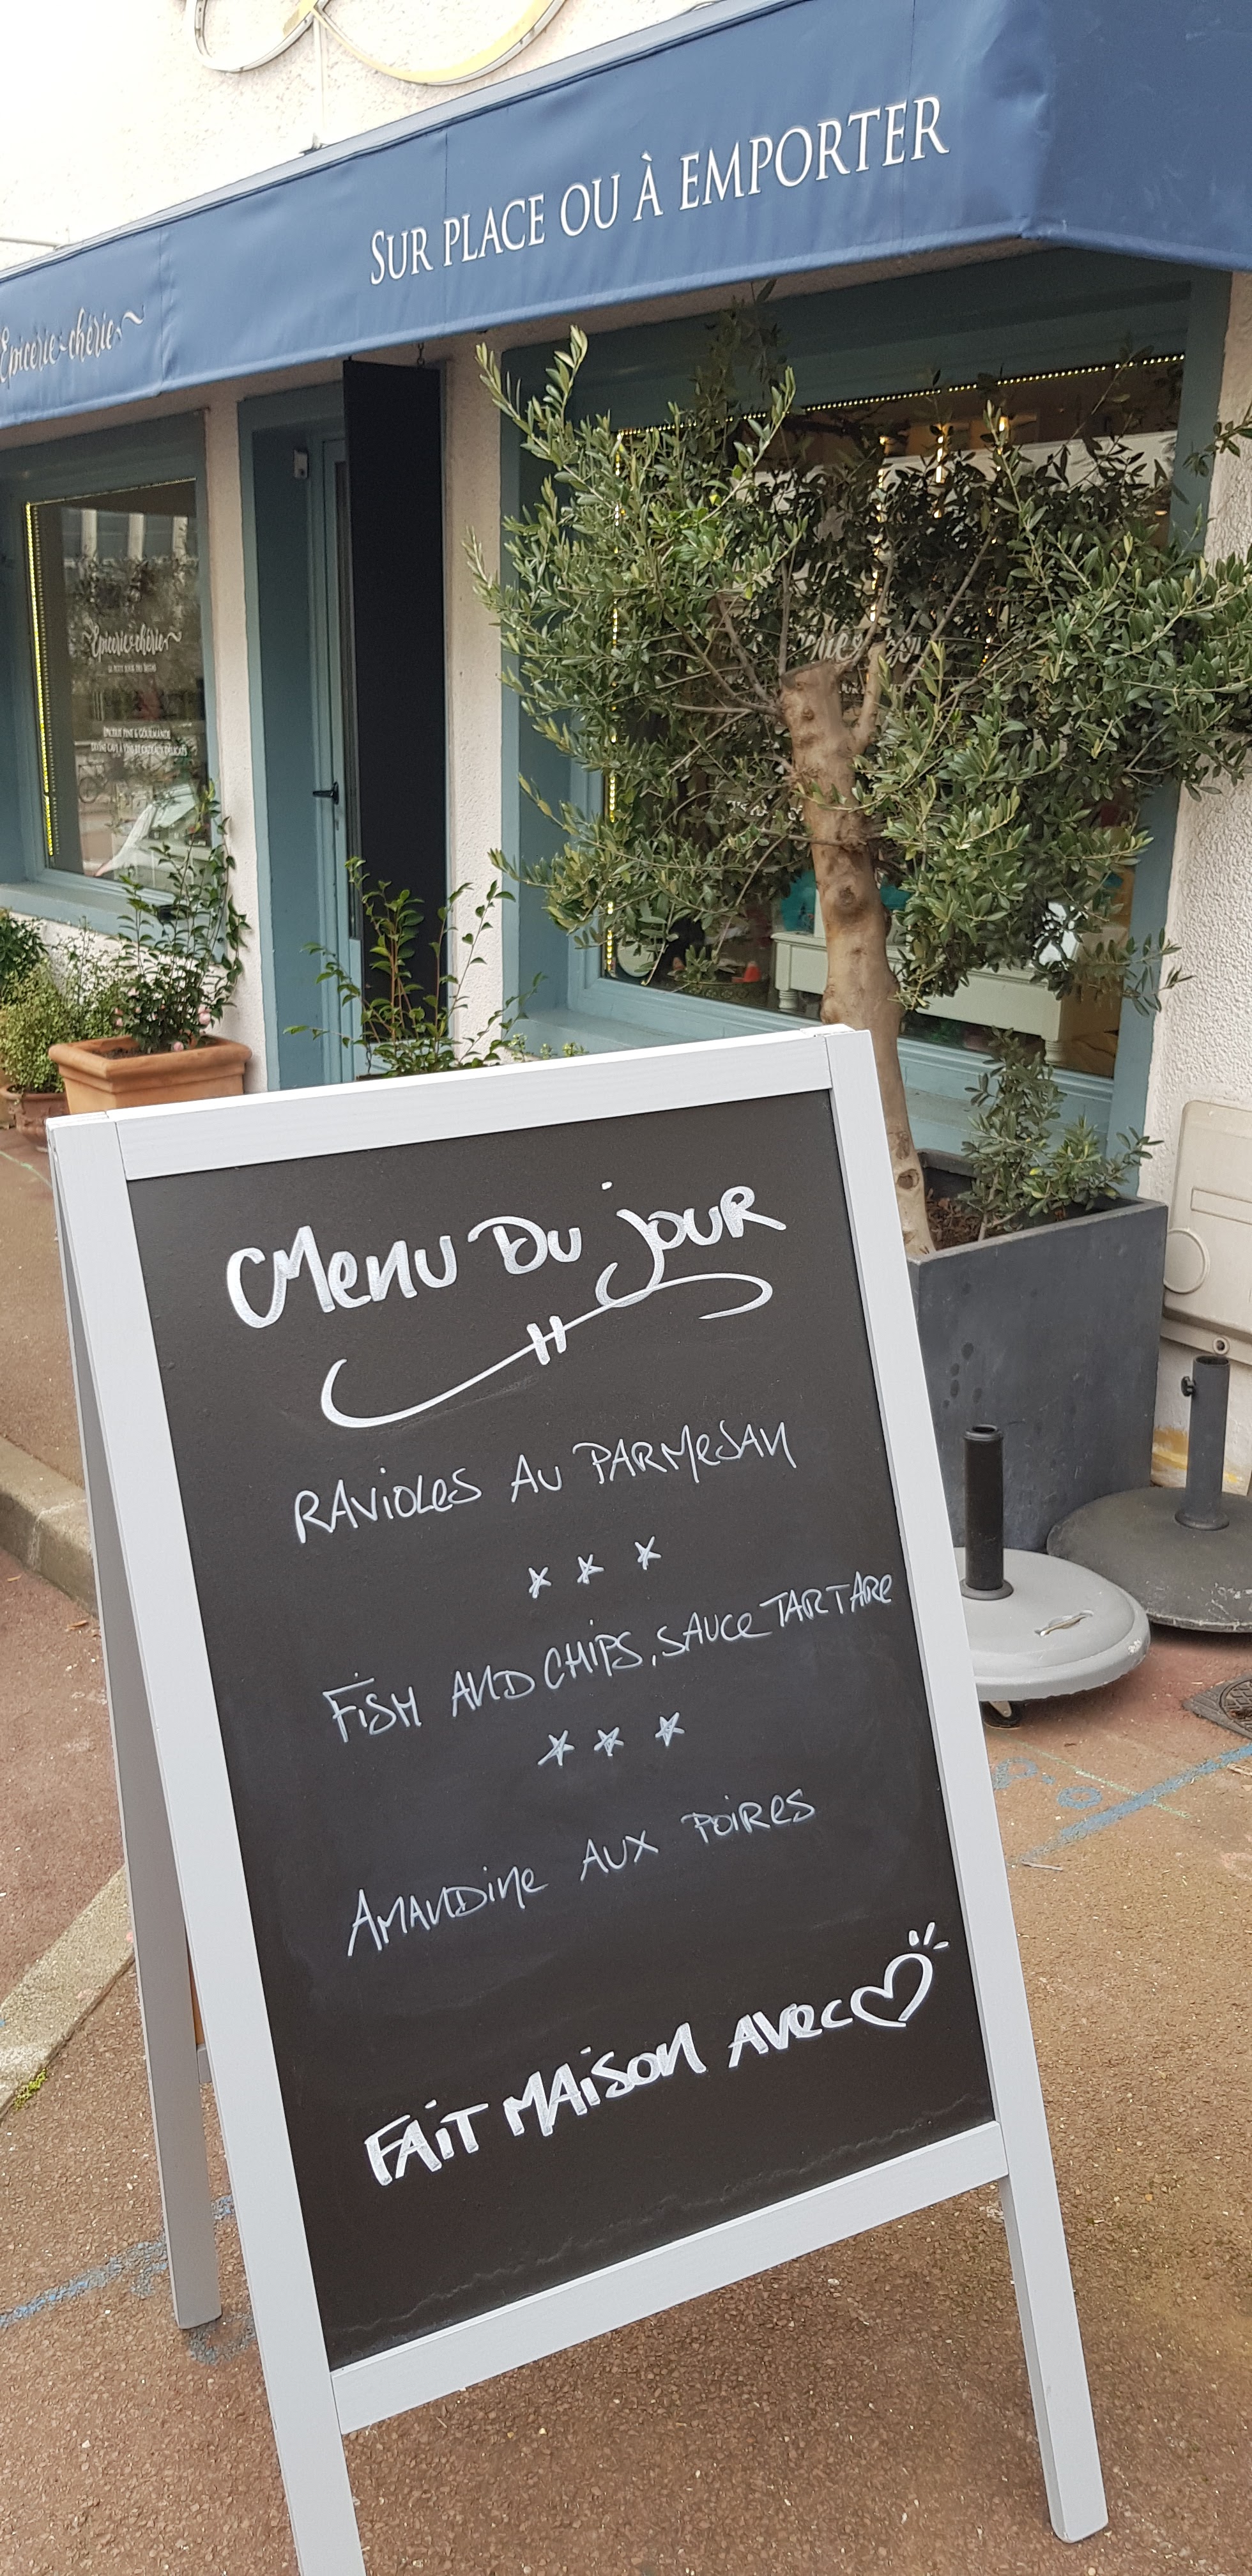 SUR PLACE OU À EMPORTER
Epicerie chérie
Epicerie chérie
EPICERIE FINE & GOURMANDE
Menu Du jour
RAvioles Au PARMesan
FisH AND CHiPS, SAUCe TARTARe
AMANDine AUX Poires
FAiT MAison Avec